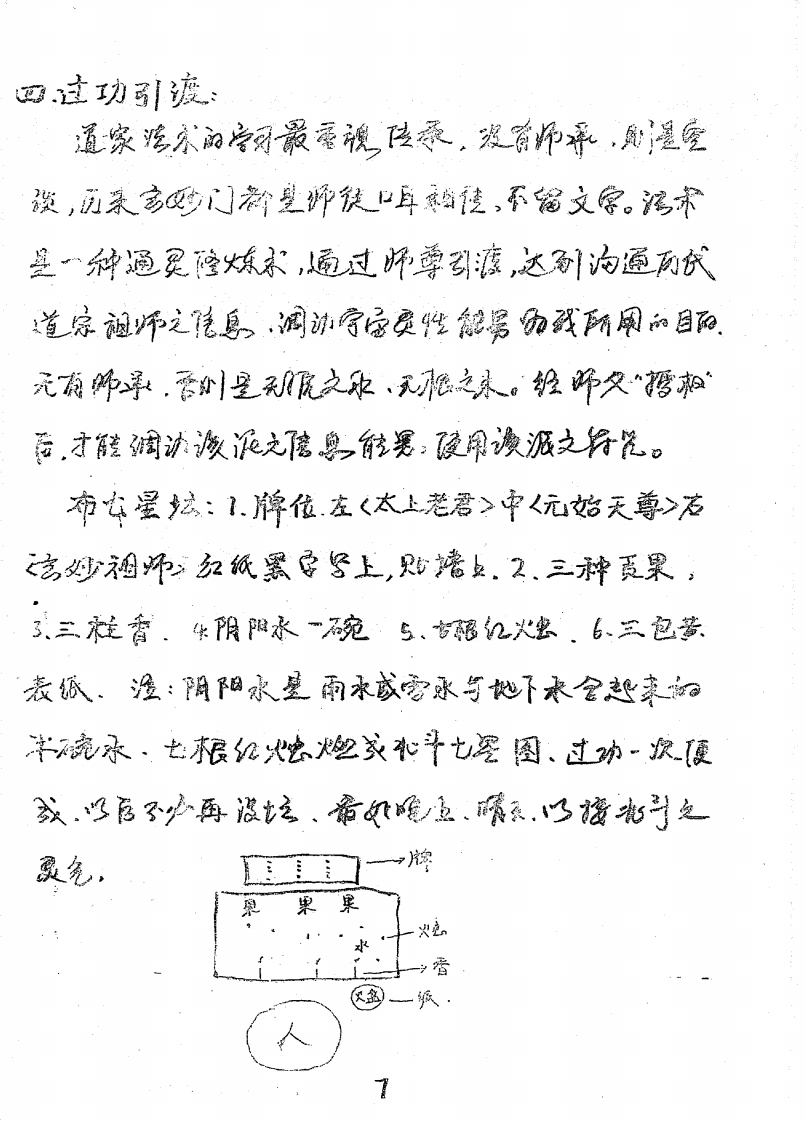 四.过功引渡:
道家法术的学习最重视传承，没有师承，则是空
谈,历来玄妙门都是师徒口耳相传、不留文字。法术
是一种通灵修炼术,通过师尊引渡,达到沟通历代
道宗祖师之信息、调动宇宙灵性能量为我所用的目的.
无有师承.否则是无源之水、无根之木。经师父"授权"
后.才能调动该派之信息能量,使用该派之符咒。
布七星坛:1.牌位.左<太上老君>中<元始天尊>右
<玄妙祖师>红纸黑字写上,贴墙上.2、三种贡果,
3.三柱香.4.阴阳水一碗 5、七根红火虫.6.三包黄
表纸、注:阴阳水是雨水或雪水与地下水合起来的
半碗水、七根红火虫燃成北斗七星图、过功一次便
成.以后不必再设坛、最好晚上、晴天、以接北斗之
灵气.
→牌
果 果 果
火虫
水
→香
火盆 — 纸.
人
7